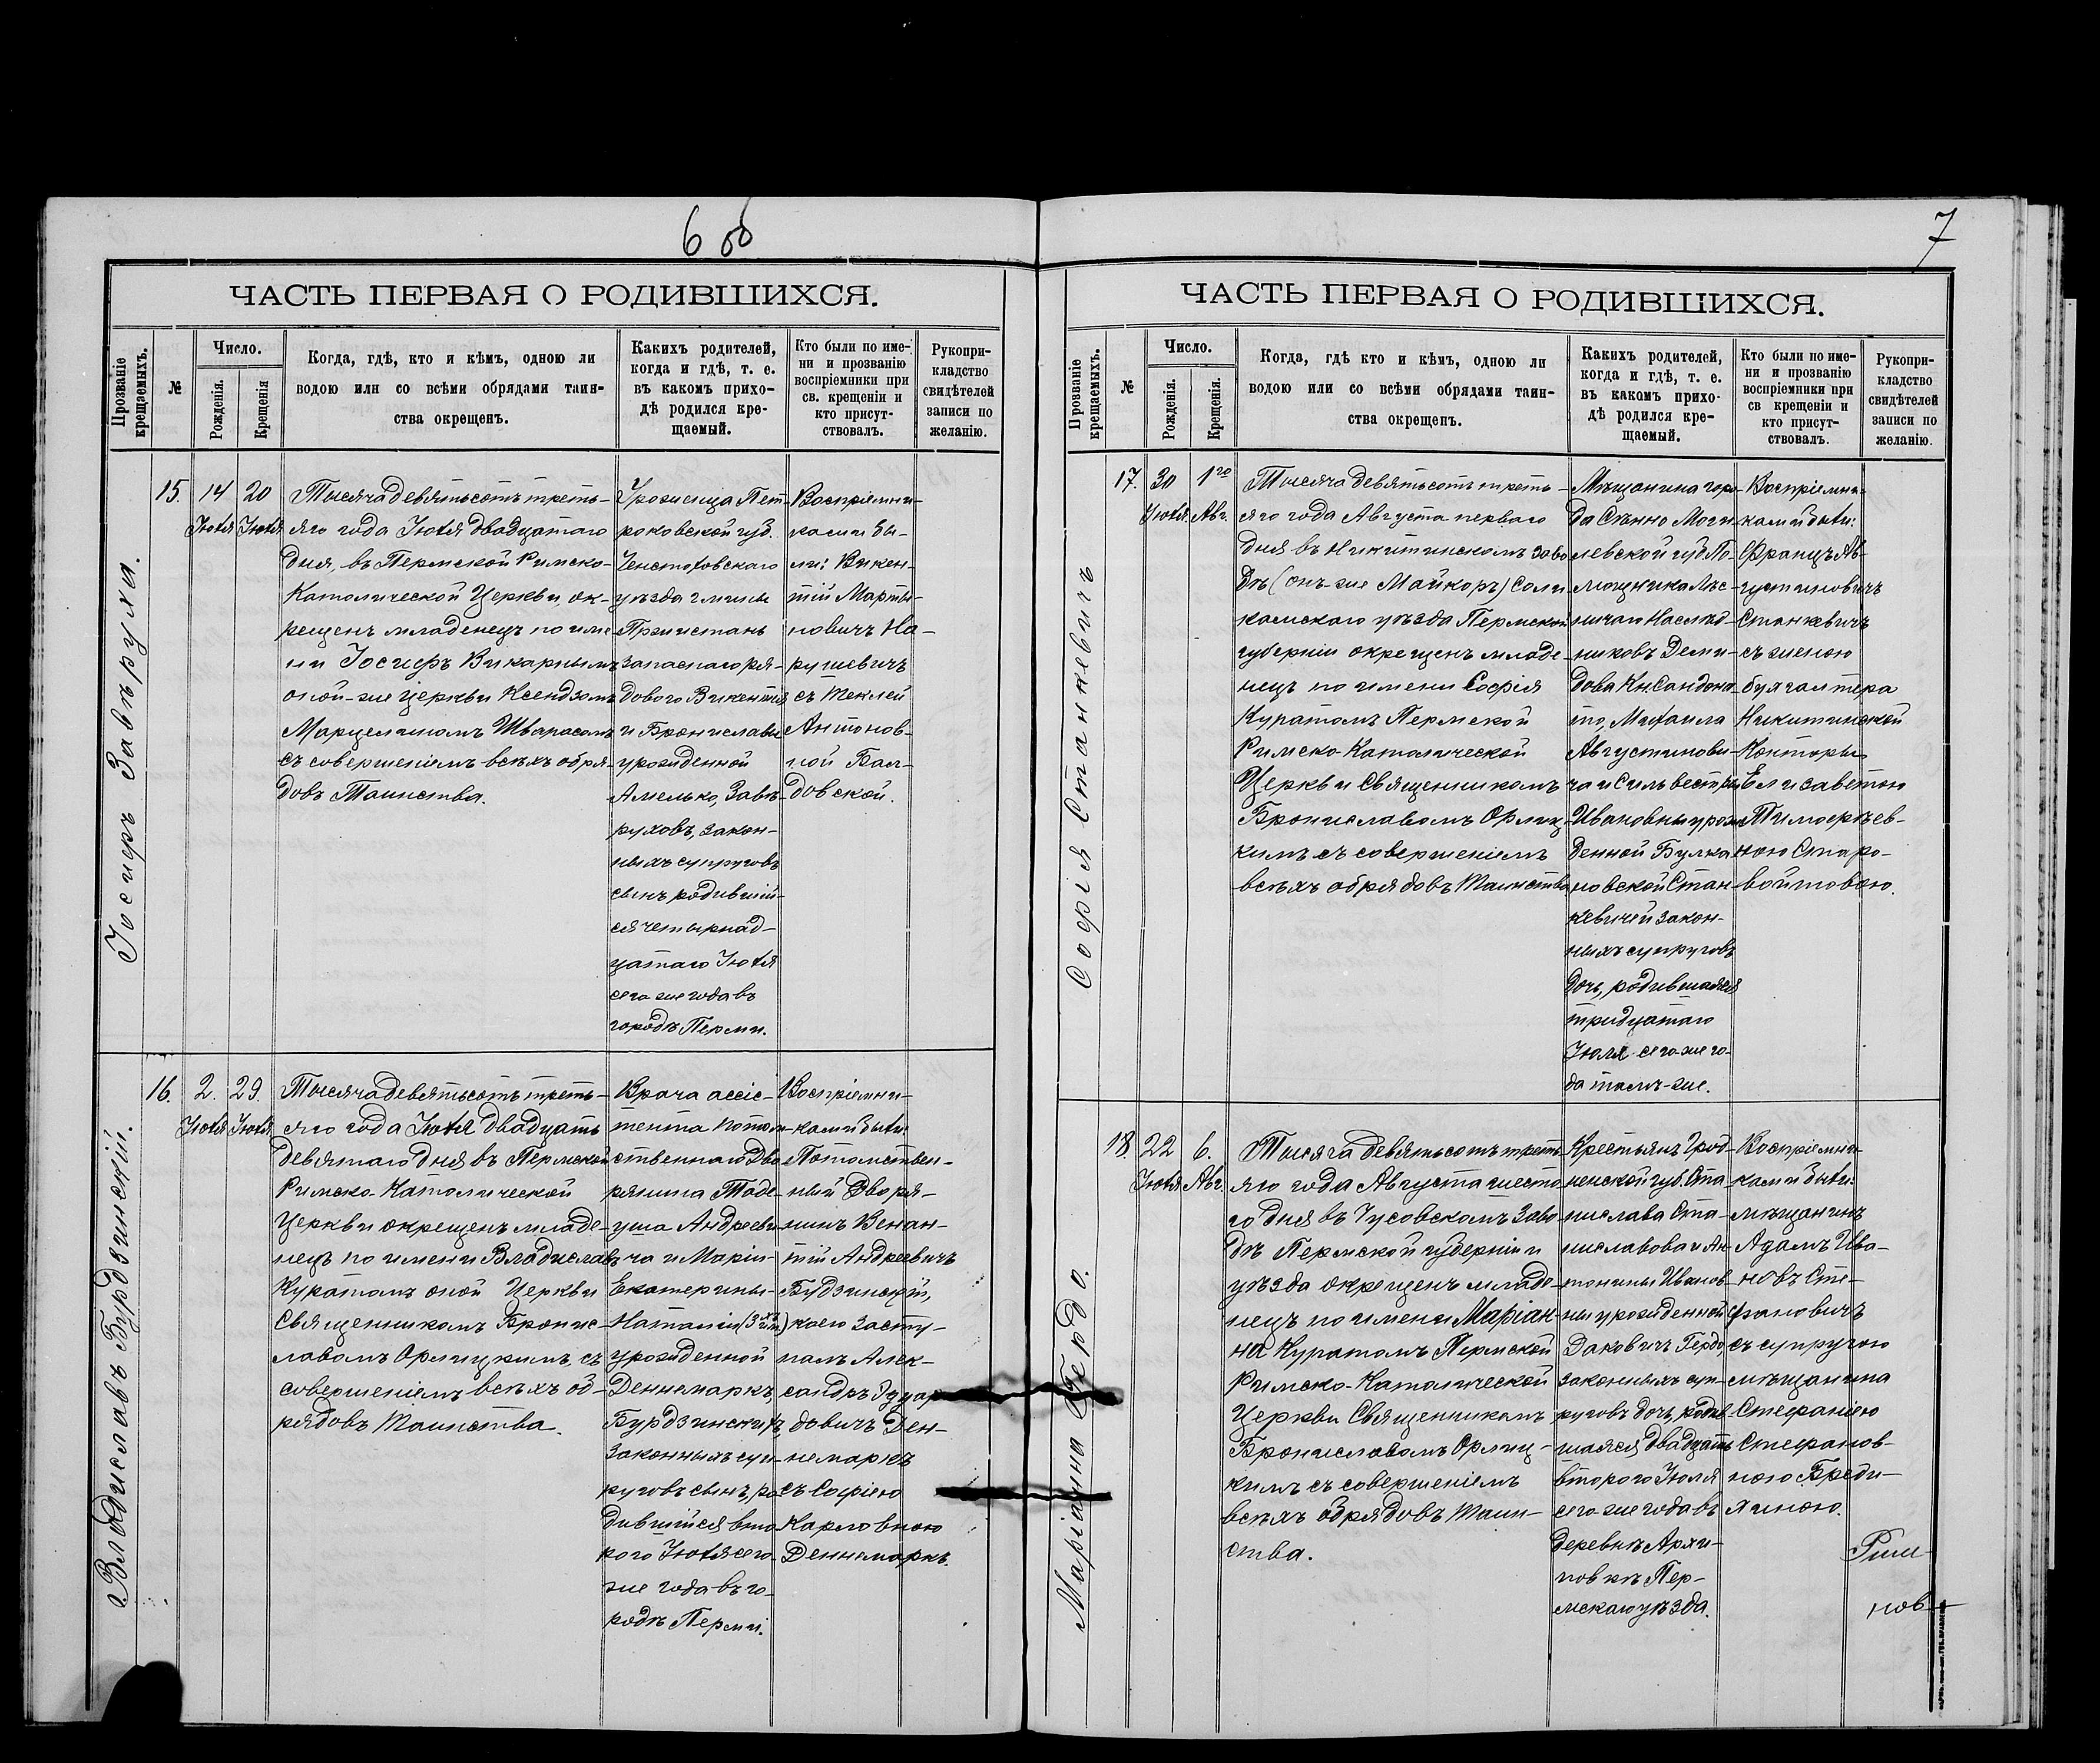 6 об
ЧАСТЬ ПЕРВАЯ О РОДИВШИХСЯ.
Прозваніе крещаемыхъ.
№
Число.
Рожденія.
Крещенія
Когда, гдѣ, кто и кѣмъ, одною ли
водою или со всѣми обрядами таин-
ства окрещенъ.
Какихъ родителей,
когда и гдѣ, т. е.
въ какомъ прихо-
дѣ родился кре-
щаемый.
Кто были по име-
ни и прозванію
воспріемники при
св. крещеніи и
кто присут-
ствовалъ.
Рукопри-
кладство
свидѣтелей
записи по
желанію.
Іосифъ Завѣруха.
15.
14
Іюля
20
Іюля
Тысяча девятьсотъ треть-
яго года Іюля двадцатаго
дня, въ Пермской Римско-
Католической Церкви, ок-
рещенъ младенецъ по име-
ни Іосифъ Викарнымъ
оной-же церкви Ксендзомъ
Марцелиномъ Шварасомъ
съ совершеніемъ всѣхъ обря-
довъ Таинства.
Уроженца Пет-
роковской губ.
Ченстоховскаго
уѣзда гмины
Пржистань
запаснаго ря-
дового Викентія
и Брониславы
урожденной
Амелько, Завѣ-
руховъ, закон-
ныхъ супруговъ
сынъ родившій-
ся четырнад-
цатаго Іюля
сего же года въ
городѣ Перми.
Воспріемни-
ками бы-
ли: Викен-
тій Марты-
новичъ На-
рушевичъ
съ Теклей
Антонов-
ной Бал-
довской.
Владиславъ Бурдзинскій.
16.
2.
Іюля
29.
Іюля
Тысяча девятьсотъ треть-
яго года Іюля двадцать
девятаго дня въ Пермской
Римско-Католической
Церкви окрещенъ младе-
нецъ по имени Владиславъ
Куратомъ оной Церкви
Священникомъ Бронис-
лавомъ Орлицкимъ, съ
совершеніемъ всѣхъ об-
рядовъ Таинства.
Врача ассис-
тента потом-
ственнаго Дво-
рянина Таде-
уша Андрееви-
ча и Маріи-
Екатерины-
Наталіи (3хъ им.)
урожденной
Деннемаркъ,
Бурдзинскихъ,
законныхъ суп-
руговъ сынъ, ро-
дившійся вто-
рого Іюля сего-
же года въ го-
родѣ Перми.
Воспріемни-
ками были
Потомствен-
ный Дворя-
нинъ Венан-
тій Андреевичъ
Будзинскій,
коего засту-
палъ Алек-
сандръ Эдуар-
довичъ Ден-
немаркъ
съ Софіею
Карловною
Деннемаркъ.
7
ЧАСТЬ ПЕРВАЯ О РОДИВШИХСЯ.
Прозваніе крещаемыхъ.
№
Число.
Рожденія.
Крещенія.
Когда, гдѣ кто и кѣмъ, одною ли
водою или со всѣми обрядами таин-
ства окрещенъ.
Какихъ родителей,
когда и гдѣ, т. е.
въ какомъ прихо-
дѣ родился кре-
щаемый.
Кто были по име-
ни и прозванію
воспріемники при
св крещеніи и
кто присут-
ствовалъ.
Рукопри-
кладство
свидѣтелей
записи по
желанію.
Софія Станкевичъ
17.
30
Іюля
1го
Авг.
Тысяча девятьсотъ треть-
яго года Августа перваго
дня въ Никитинскомъ заво-
дѣ (онъ-же Майкоръ) Соли-
камскаго уѣзда Пермской
губерніи окрещенъ младе-
нецъ по имени Софія
Куратомъ Пермской
Римско-Католической
Церкви Священникомъ
Брониславомъ Орлиц-
кимъ съ совершеніемъ
всѣхъ обрядовъ Таинства
Мѣщанина горо-
да Сѣнно Моги-
левской губ. По-
мощника Лѣс-
ничаго Наслѣд-
никовъ Деми-
дова Кн. Сан-Дона-
то, Михаила
Августинови-
ча и Сильвестры
Ивановны урож-
денной Булка-
новской Стан-
кевичей закон-
ныхъ супруговъ
дочь, родившаяся
тридцатаго
Іюля сего-же го-
да тамъ-же.
Воспріемни-
ками были:
Францъ Ав-
густиновичъ
Станкевичъ
съ женою
бухгалтера
Никитинской
Конторы
Елисаветою
Тимофѣев-
ною Старо-
войтовою.
Маріанна Гердо.
18.
22
Іюля
6.
Авг.
Тысяча девятьсотъ треть-
яго года Августа шесто-
го дня въ Чусовскомъ Заво-
дѣ Пермской губерніи и
уѣзда окрещенъ младе-
нецъ по имени Маріан-
на Куратомъ Пермской
Римско-Католической
Церкви Священникомъ
Брониславомъ Орлиц-
кимъ съ совершеніемъ
всѣхъ обрядовъ Таин-
ства.
Крестьянъ Грод-
ненской губ. Ста-
нислава Ста-
ниславова и Ан-
тонины Иванов-
ны урожденной
Даковичъ Гердо,
законныхъ суп-
руговъ дочь, родив-
шаяся двадцать
второго Іюля
сего-же года въ
деревнѣ Архи-
повкѣ Пер-
мскаго уѣзда.
Воспріемни-
ками были:
мѣщанинъ
Адамъ Ива-
новъ Сте-
фановичъ
съ супругою
мѣщанина
Стефаніею
Стефанов-
ною Бреди-
хиною.